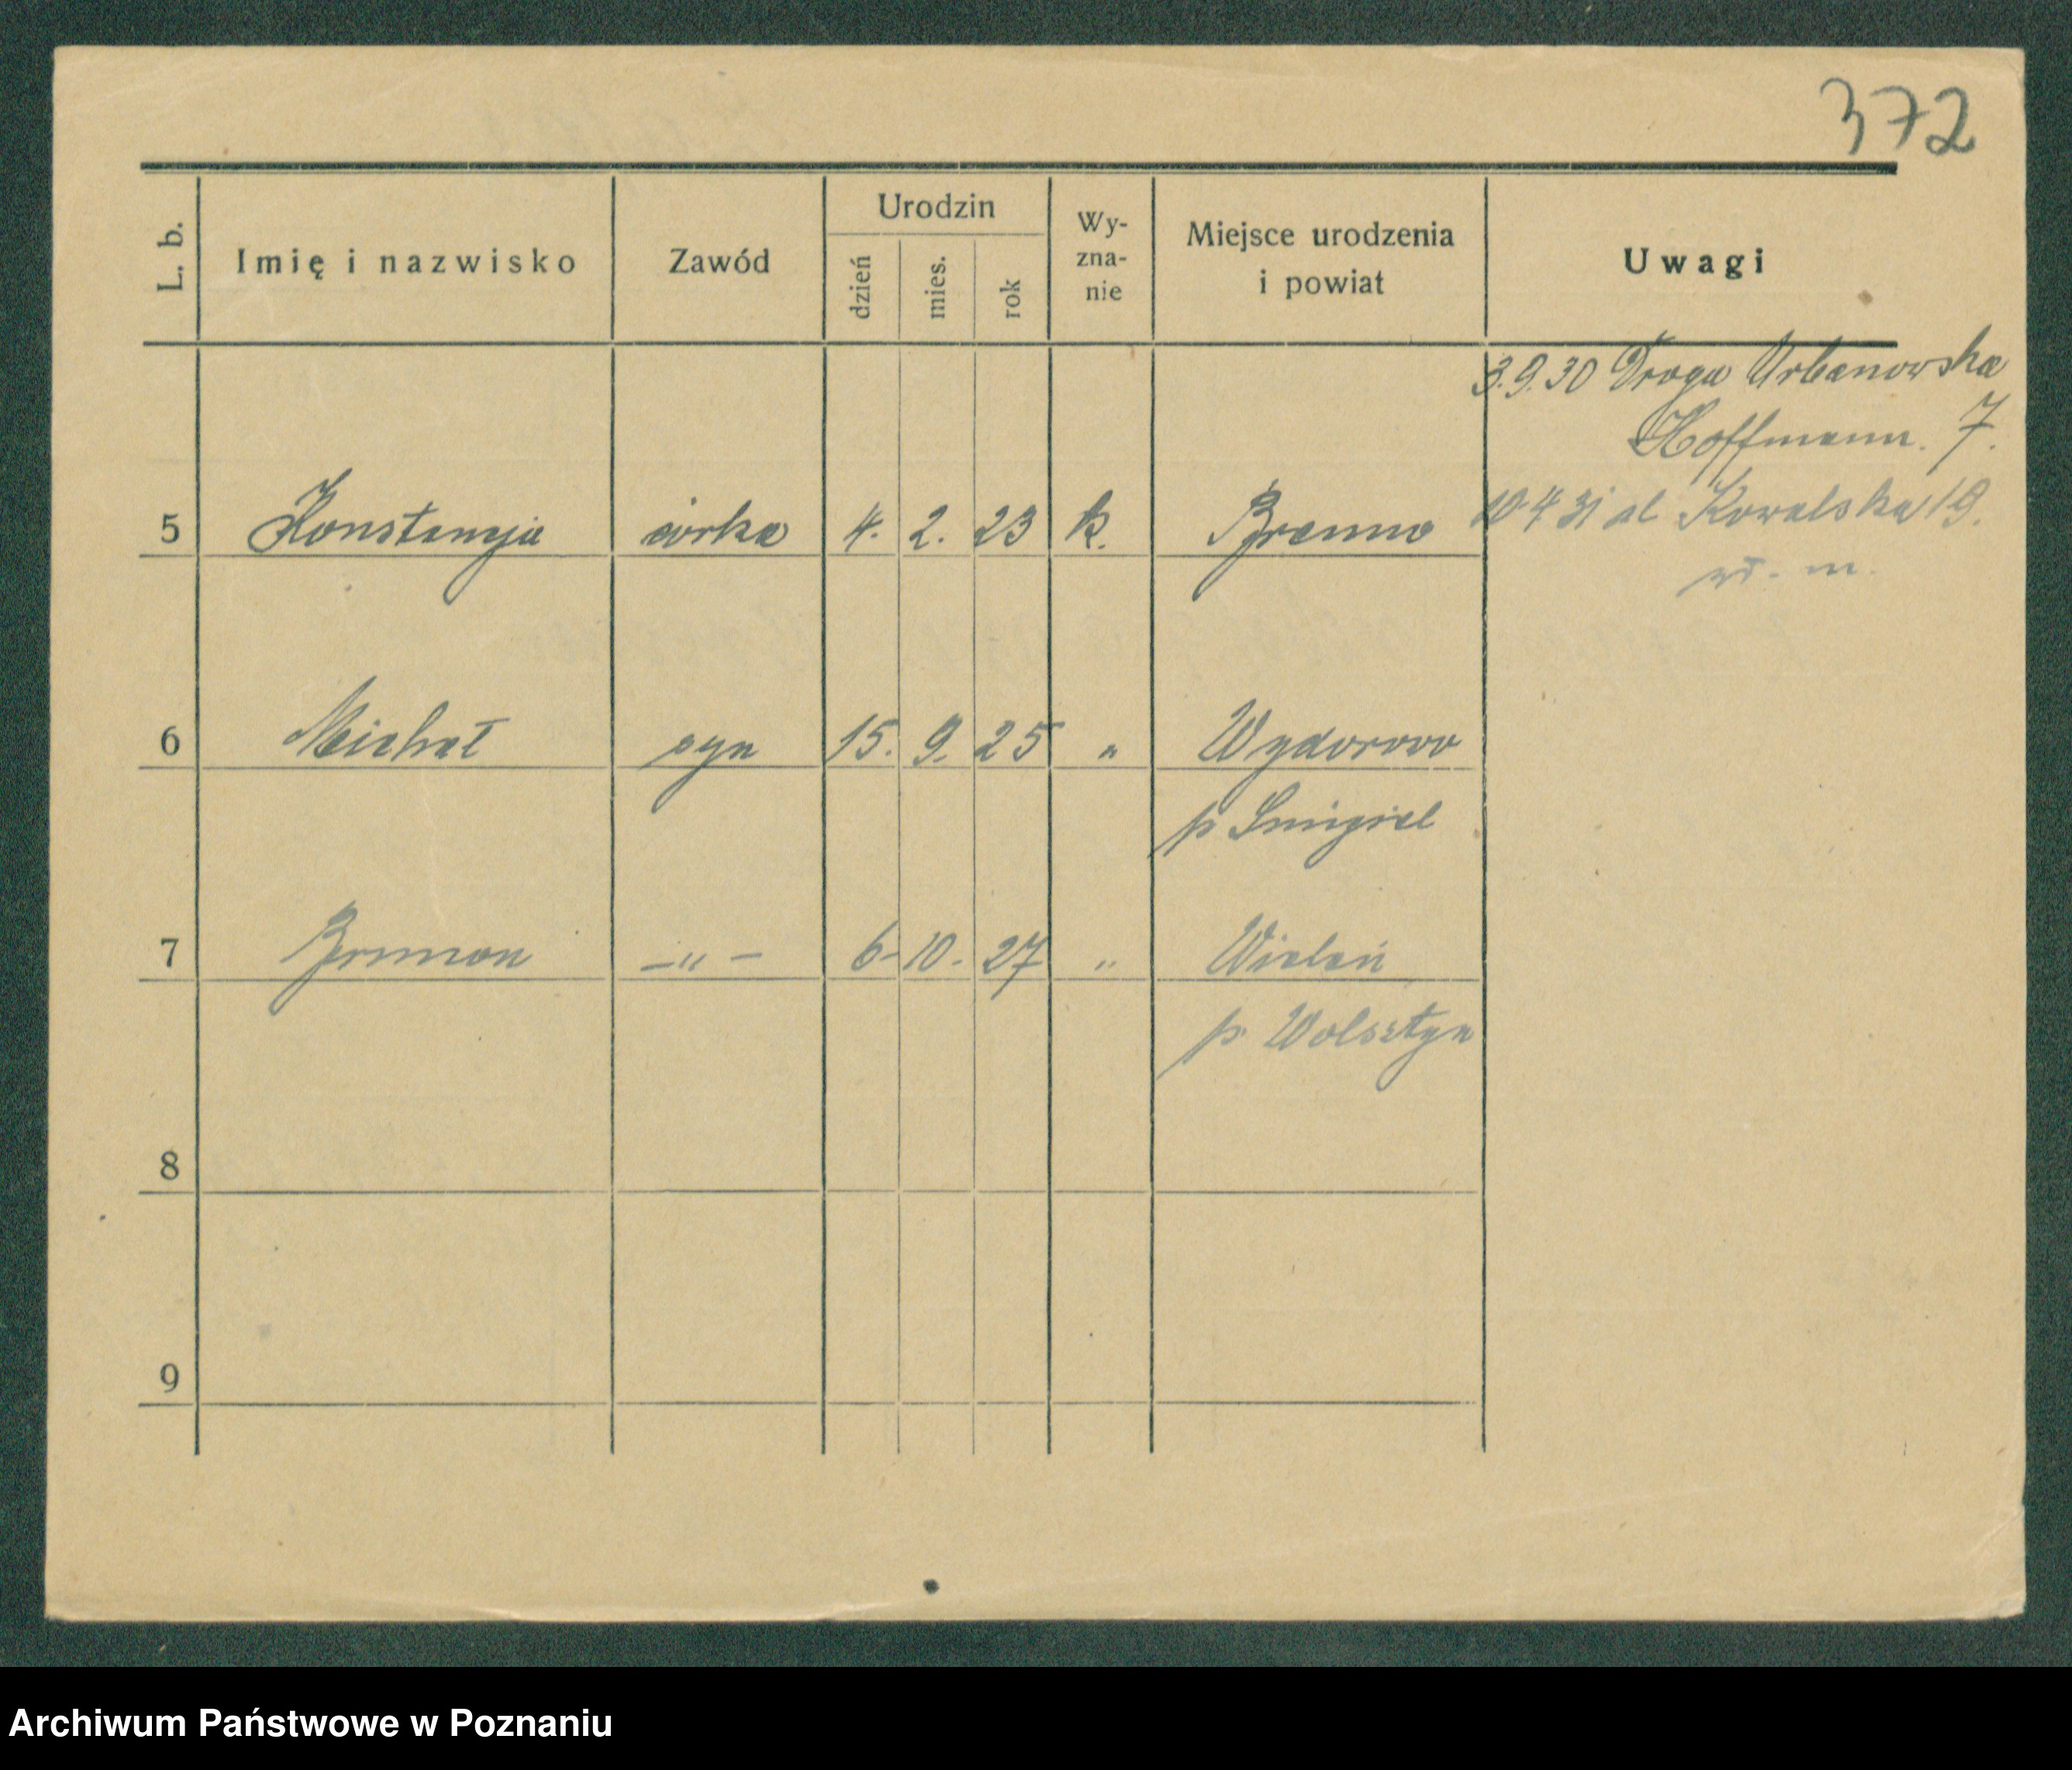 372
L. b.
Imię i nazwisko
Zawód
Urodzin
dzień
mies.
rok
Wy-
zna-
nie
Miejsce urodzenia
i powiat
Uwagi
3.9.30 Droga Urbanowska
Hoffmann. 7.
5 Konstancja córka 4. 2. 23 k. Brenno
10 4 31 ul Kowalska 19.
6 Michał syn 15. 9. 25 " Wydorowo
p Śmigiel
7 Brunon —"— 6. 10. 27 " Wieleń
p. Wolsztyn
8
9
Archiwum Państwowe w Poznaniu